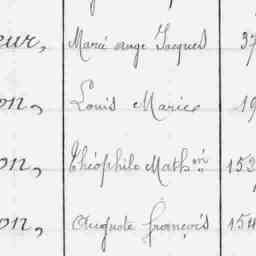 eur, Marie ange Jacques 37
on, Louis Marie 19
on, Théophile Math.in 152
on, Auguste françois 154